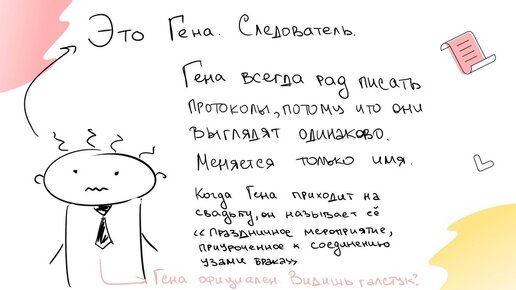 Это Гена. Следователь.
Гена всегда рад писать
протоколы, потому что они
выглядят одинаково.
Меняется только имя.
Когда Гена приходит на
свадьбу, он называет её
«Праздничное мероприятие,
приуроченное к соединению
узами брака»
Гена официален. Видишь галстук?